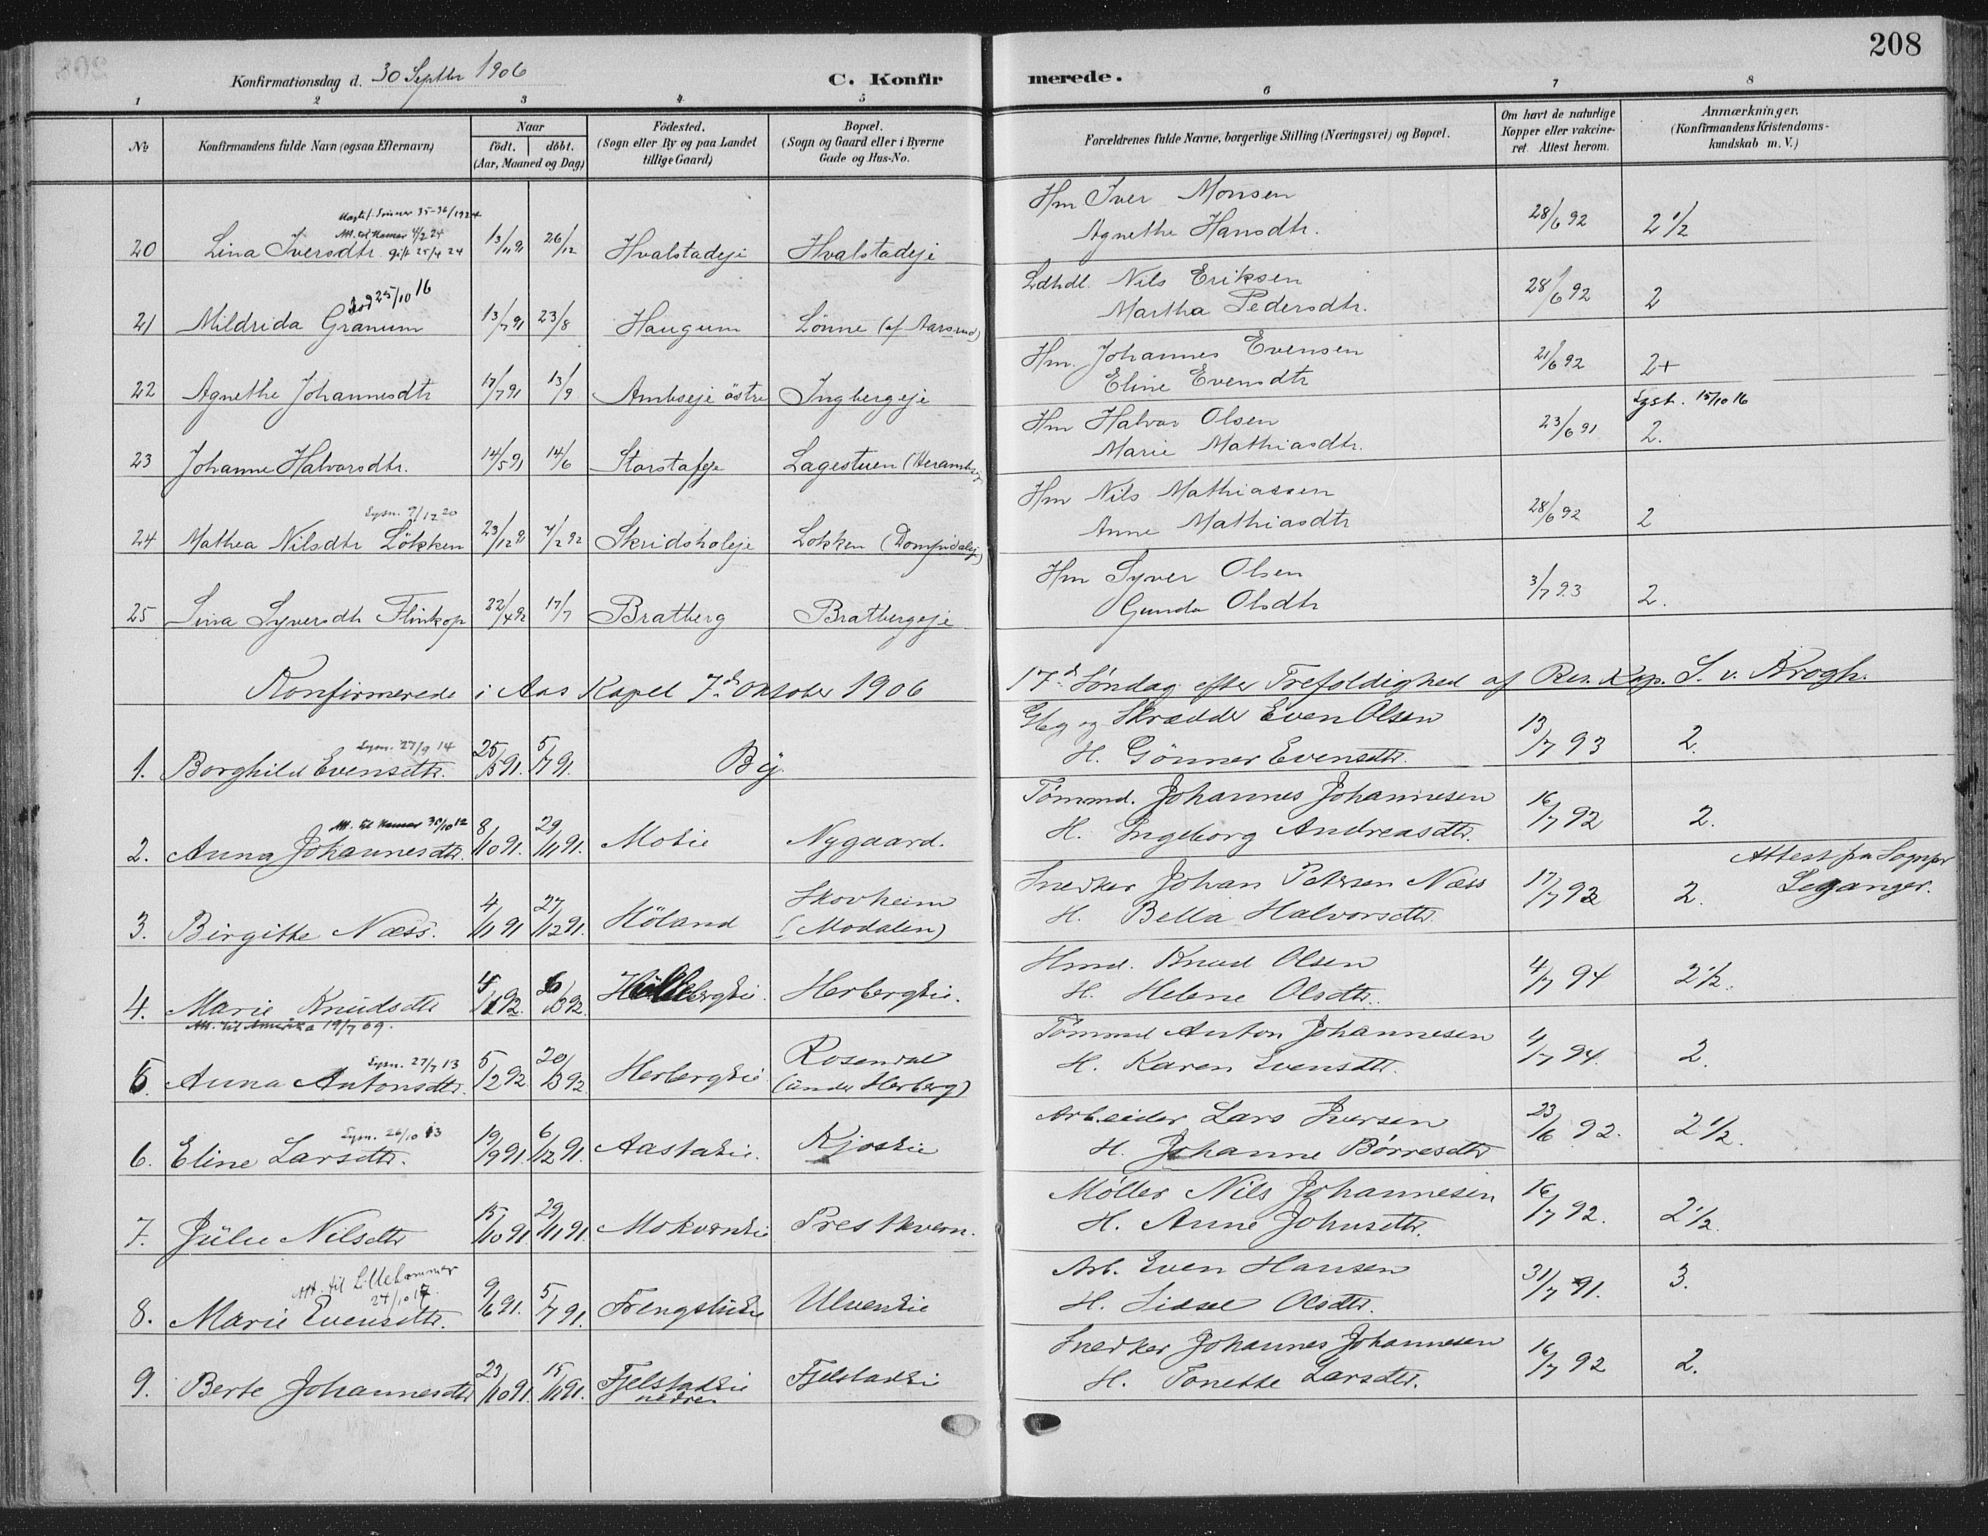 208
Konfirmationsdag d. 30 Septbr 1906 C. Konfirmerede.
1 2 3 4 5 6 7 8
No Konfirmandens fulde Navn (ogsaa Efternavn) Naar födt. döbt. (Aar, Maaned og Dag) Födested. (Sogn eller By og paa Landet tillige Gaard) Bopæl. (Sogn og Gaard eller i Byerne Gade og Hus-No. Forældrenes fulde Navne, borgerlige Stilling (Næringsvei) og Bopæl. Om havt de naturlige Kopper eller vakcineret. Attest herom. Anmærkninger. (Konfirmandens Kristendomskundskab m. V.)
Att. til Hamar 4/2 24
20 Lina Iversdtr gift 25/4 24 13/11 91 26/12 Hvalstadeje Hvalstadeje Hm Iver Monsen Agnethe Hansdtr. 28/6 92 2 1/2
död 25/10 16
21 Mildrida Granum 13/7 91 23/8 Haugum Lönne (af Aarsrud) Ldhdl. Nils Eriksen Martha Pedersdtr. 28/6 92 2
22 Agnethe Johannesdtr 17/7 91 13/9 Ambseje östre Ingbergeje Hm. Johannes Evensen Eline Evensdtr 21/6 92 2+
Lyst. 15/10 16
23 Johanne Halvorsdtr. 14/5 91 14/6 Storstafeje Lagestuen Hm Halvor Olsen Marie Mathiasdtr. 23/6 91 2.
Lysn. 9/12 20
24 Mathea Nilsdtr Lökken 23/12 91 7/2 92 Skridsholeje Lokken Hm Nils Mathiassen Anne Mathiasdtr 28/6 92 2
25 Lina Syversdtr Flinkop 22/4 92 17/7 Bratberg Bratbergeje Hm Syver Olsen Gunda Olsdtr 3/7 93 2.
Konfirmerede i Aas Kapel 7de Oktober 1906 17de Söndag efter Trefoldighed af Res. Kap. S. v. Krogh.
Lysn. 27/9 14
1. Borghild Evensdtr. 25/5 91. 5/7 91. By. Gbg og Skrædder Even Olsen H. Gönner Evensdtr. 13/7 93 2.
Att. til Hamar 30/10 12
2. Anna Johannesdtr. 8/10 91. 29/11 91. Moeie Nygaard. Tömmd. Johannes Johannesen H. Ingeborg Andreasdtr. 16/7 92 2.
3. Birgitte Næss. 4/11 91 27/12 91. Höland Skovheim (Modalen) Snedker Johan Petersen Næss H. Bella Halvorsdtr. 17/7 92 2. Attest fra Sognpr Leganger.
4. Marie Knudsdtr 4/1 92. 6/3 92. Herbergseie. Herbergseie. Hmd. Knud Olsen H. Helene Olsdtr. 4/7 94 2 1/2.
Att. til Amerika 19/7 09.
Lysn. 27/7 13
5. Anna Antonsdtr. 5/2 92 20/3 92 Herbergseie Rosendal (under Herberg) Tömmd Anton Johannesen H. Karen Evensdtr. 4/7 94. 2.
Lysn. 26/10 13
6. Eline Larsdtr. 19/9 91. 6/12 91. Aastaeie. Kjoseie Arbeider Lars Iversen H. Johanne Börresdtr 23/6 92. 2 1/2.
7. Julie Nilsdtr 15/10 91. 29/11 91. Mokverneie Prestkvern. Möller Nils Johannesen H. Anne Johnsdtr. 16/7 92. 2 1/2.
Att. til Lillehammer 24/10 17.
8. Marie Evensdtr. 9/6 91. 5/7 91. Frengstueie Ulveneie Arb. Even Hansen H. Sidsel Olsdtr. 31/7 91. 3.
9. Berte Johannesdtr 23/10 91. 15/11 91. Fjelstadeie nedre Fjelstadeie Snedker Johannes Johannesen H. Tonette Larsdtr. 16/7 92 2.